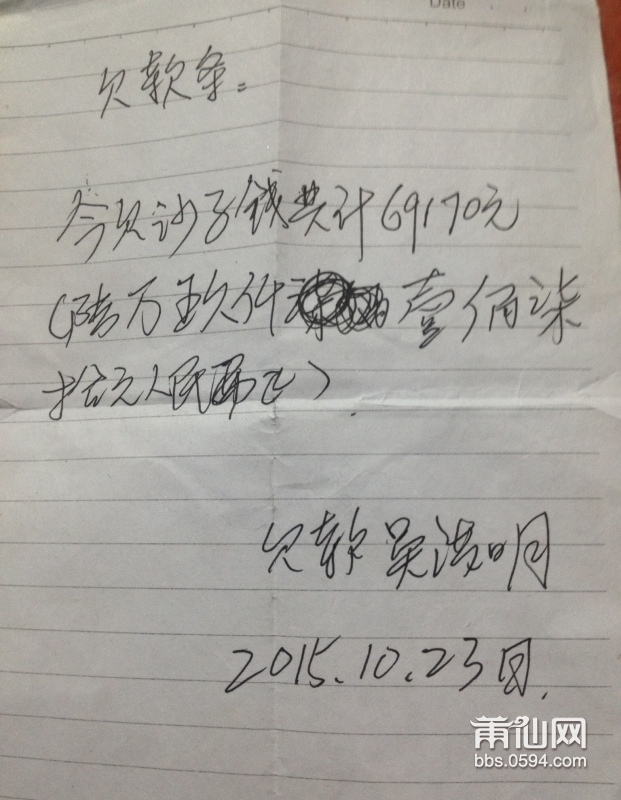 Date
欠款条:
今欠沙子钱共计69170元
(陆万玖仟壹佰柒
拾元人民币正)
欠款吴清明
2015.10.23日.
莆仙网
bbs.0594.com